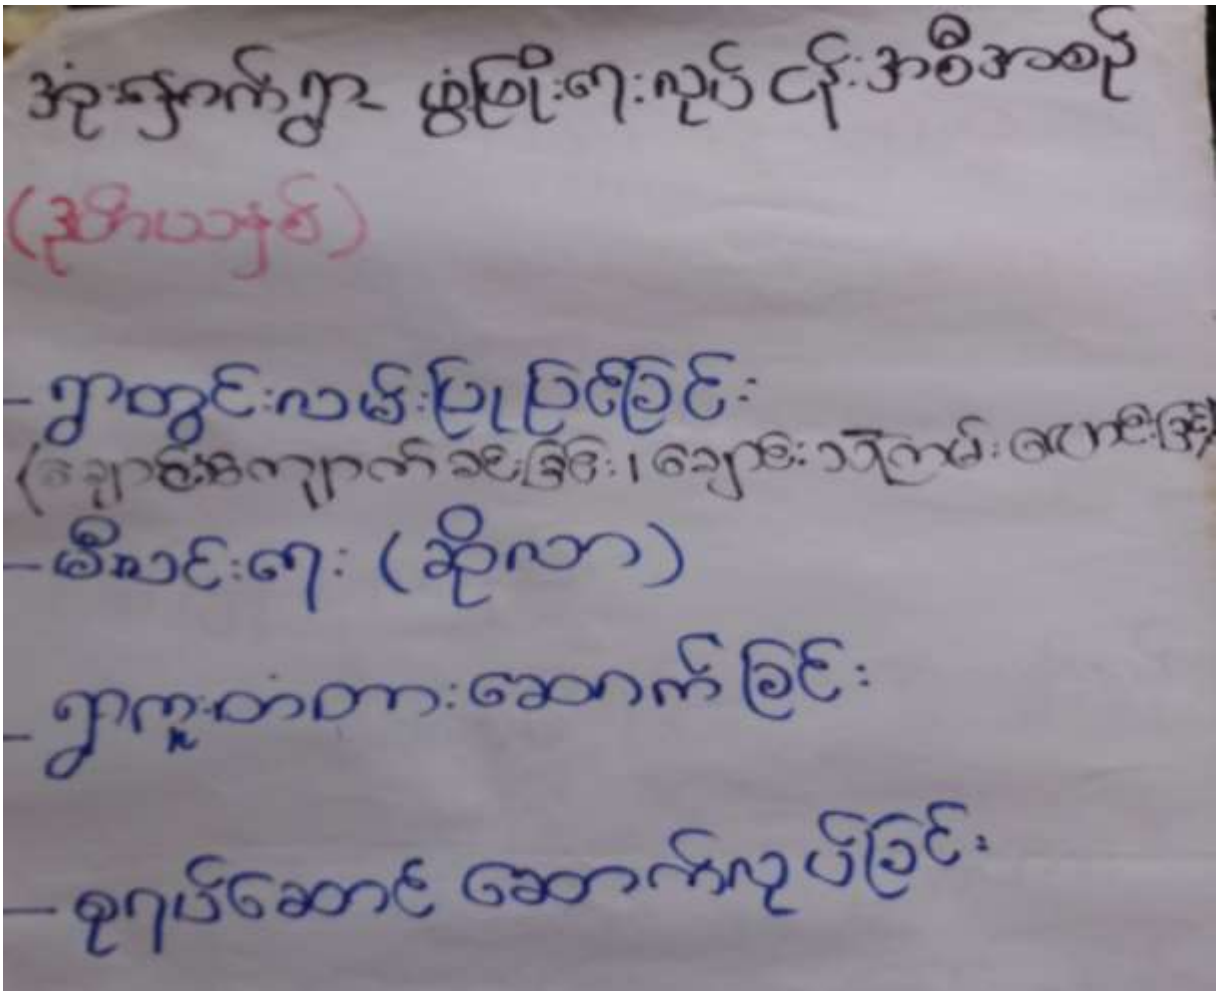 အုံးနှောက်ရွာ ဖွံ့ဖြိုးရေးလုပ်ငန်းအစီအစဉ်
(ဒုတိယနှစ်)
- ရွာတွင်းလမ်းပြုပြင်ခြင်း
ကျောက်ခင်းခြင်း၊ ချောင်း
- မီးလင်းရေး (ဆိုလာ)
- ရွာကူးတံတားဆောက်ခြင်း
- စုရပ်ဆောင် ဆောက်လုပ်ခြင်း